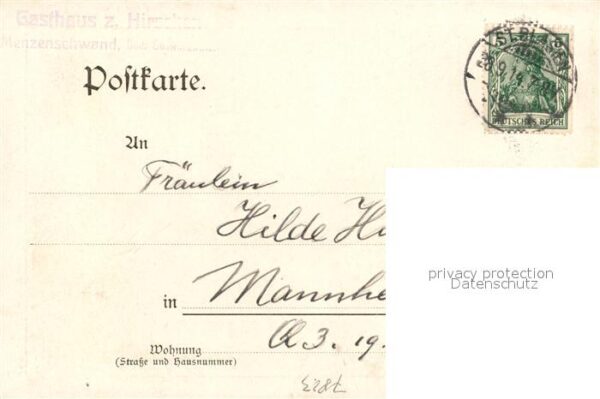 Gasthaus z. Hirschen
Menzenschwand,
ST. BLASIEN
DEUTSCHES REICH
Postkarte.
An
Fräulein
Hilde H
in Mannhe
Q 3. 19.
Wohnung
(Straße und Hausnummer)
privacy protection
Datenschutz